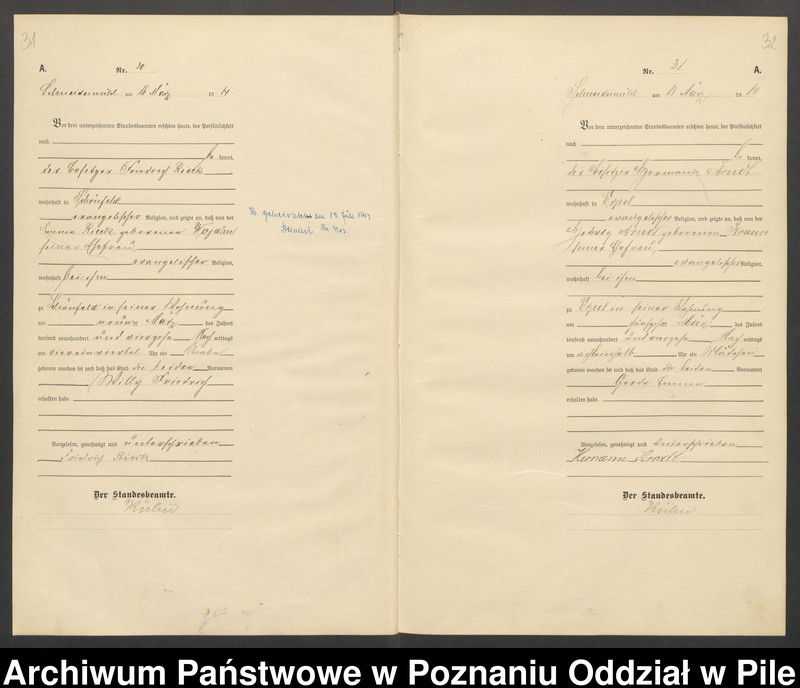 31
A.
Nr. 30
Schneidemühl am März 19 14.
Vor dem unterzeichneten Standesbeamten erschien heute, der Persönlichkeit
nach
kannt,
der Besitzer Friedrich Rieck
wohnhaft in Schönfeld
evangelischer Religion, und zeigte an, daß von der
Emma Rieck geborenen
seiner Ehefrau,
evangelischer Religion,
wohnhaft bei ihm
zu Schönfeld in seiner Wohnung
am neunten März des Jahres
tausend neunhundert und vierzehn Nach mittags
um viereinviertel Uhr ein Knabe
geboren worden sei und daß das Kind die beiden Vornamen
Willy Friedrich
erhalten habe.
Vorgelesen, genehmigt und unterschrieben
Friedrich Rieck
Der Standesbeamte.
geheiratet am 1943
32
Nr. 31
A.
Schneidemühl am März 19 14
Vor dem unterzeichneten Standesbeamten erschien heute, der Persönlichkeit
nach
kannt,
der Besitzer Hermann Arndt
wohnhaft in
evangelischer Religion, und zeigte an, daß von der
Hedwig Arndt geborenen Krause
seiner Ehefrau,
evangelischer Religion,
wohnhaft bei ihm
zu in seiner Wohnung
am März des Jahres
tausend neunhundert und vierzehn Nach mittags
um achteinhalb Uhr ein Mädchen
geboren worden sei und daß das Kind die beiden Vornamen
Emma
erhalten habe.
Vorgelesen, genehmigt und unterschrieben
Hermann Arndt
Der Standesbeamte.
Archiwum Państwowe w Poznaniu Oddział w Pile